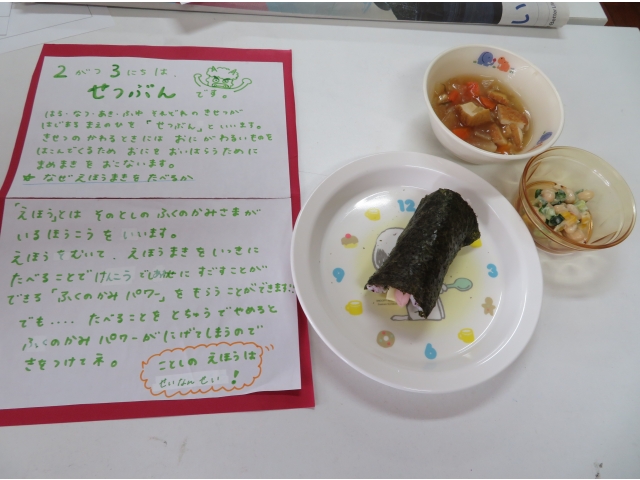 2がつ3にちは、
せつぶん です。
はる・なつ・あき・ふゆ それぞれの きせつが
はじまる まえのひを 「せつぶん」と いいます。
きせつの かわるときには おにが わるいものを
はこんでくるため おにを おいはらうために
まめまきを おこないます。
★なぜえほうまきをたべるか
「えほう」とは そのとしの ふくのかみさまが
いるほうこうを いいます。
えほうをむいて、えほうまきを いっきに
たべることで けんこうで しあわせに すごすことが
できる「ふくのかみパワー」を もらうことができます。
でも‥‥ たべることを とちゅうでやめると
ふくのかみパワーが にげてしまうので
きをつけてネ。
ことしの えほうは
せいなんせい!
い
12
3
6
9